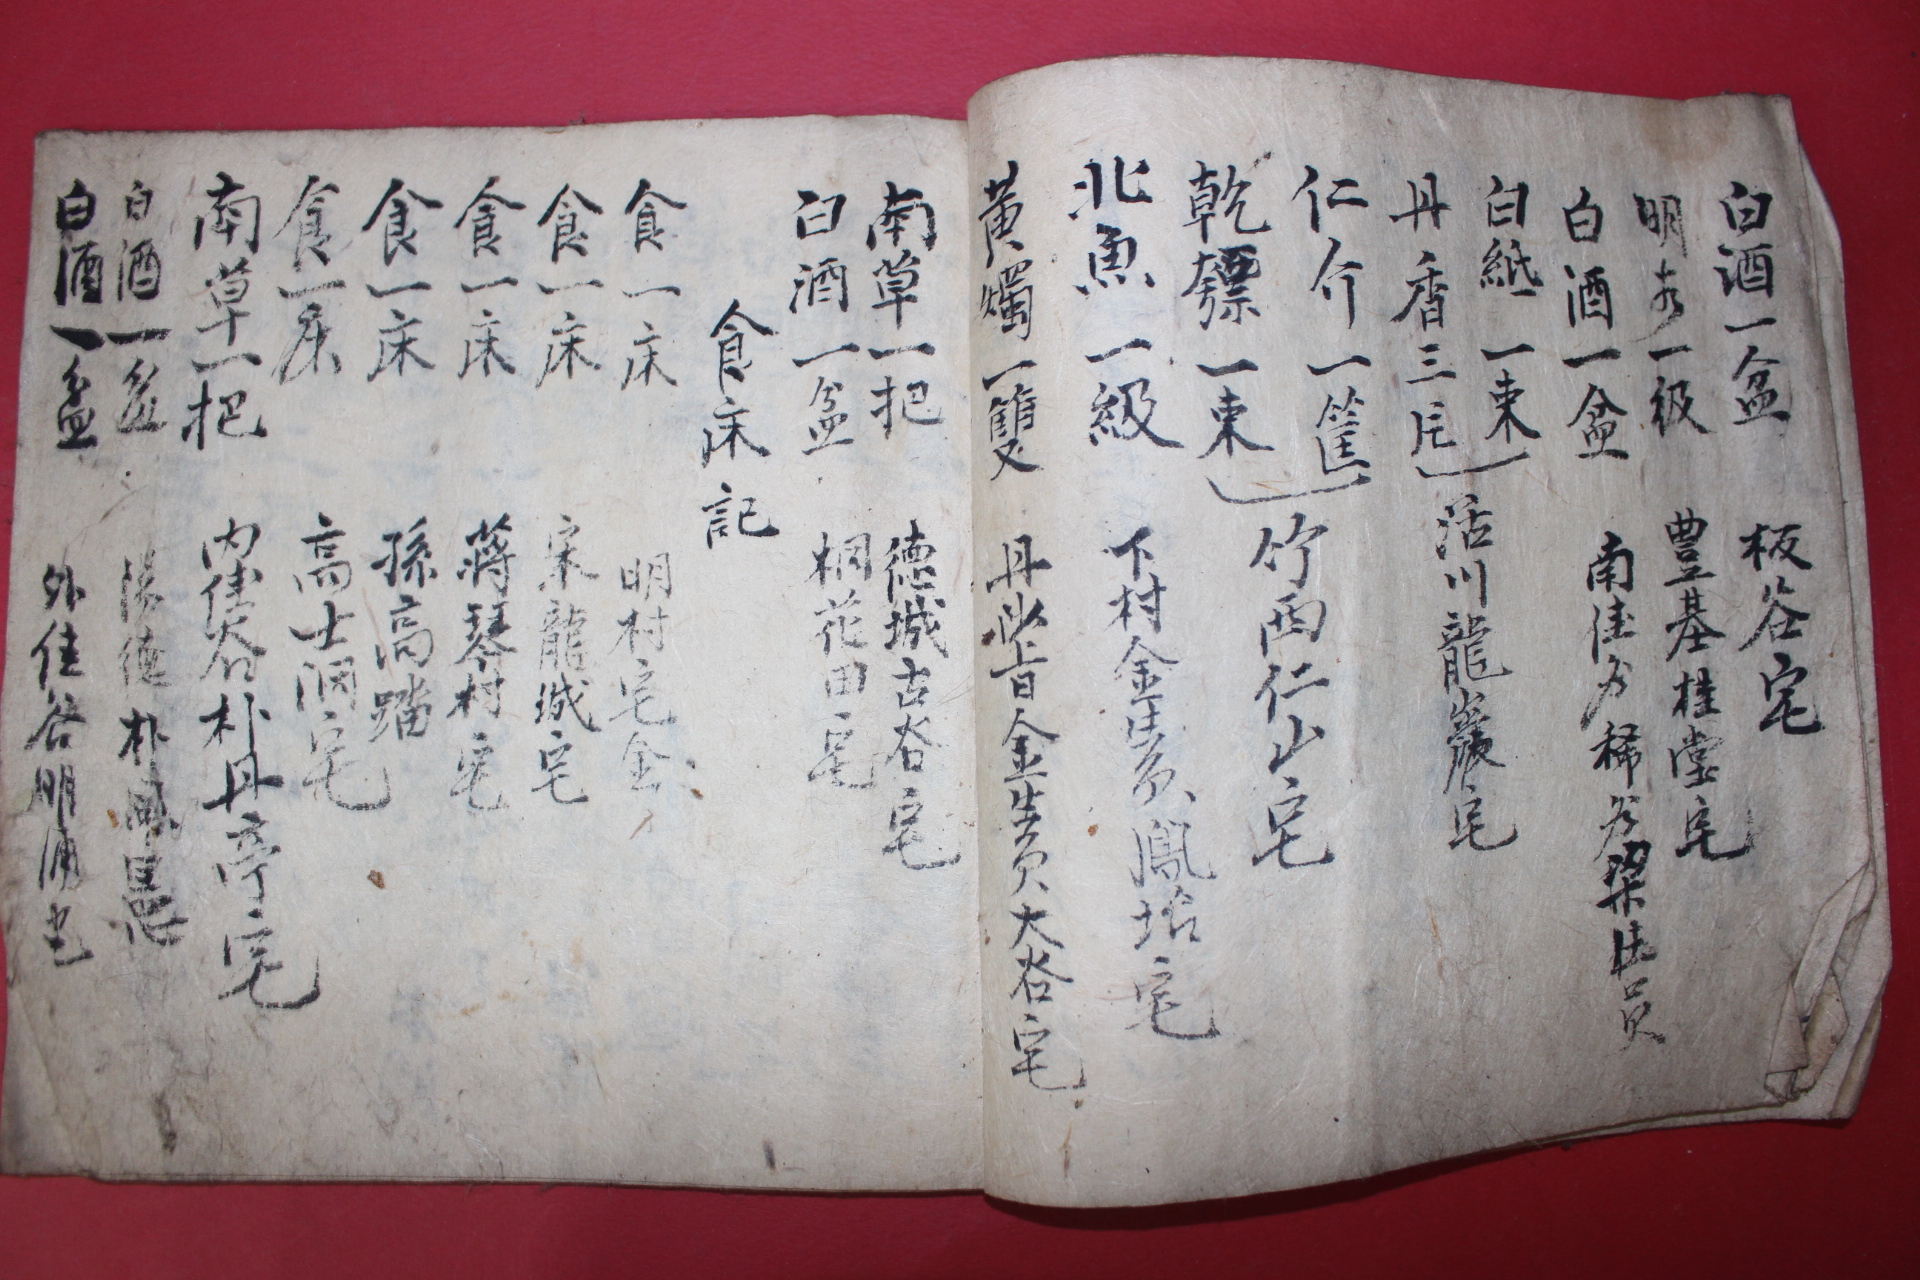 白酒一盆 板谷宅
明太一級 豊基桂堂宅
白酒一盆 南佳 稀 梁生員
白紙一束
丹香三戸 活川龍巖宅
仁介一筐
乾鰾一束 竹西仁山宅
北魚一級 下村金生員鳳坮宅
黃燭一雙 丹 金生員大谷宅
南草一把 德城古谷宅
白酒一盆 桐花田宅
食床記
食一床 明村宅
食一床 宋龍城宅
食一床 蔣琴村宅
食一床 孫高踏
食一床 高士洞宅
南草一把 內佳谷朴丹亭宅
白酒一盆 陽德朴鳳愚
白酒一盆 外佳谷明浦宅